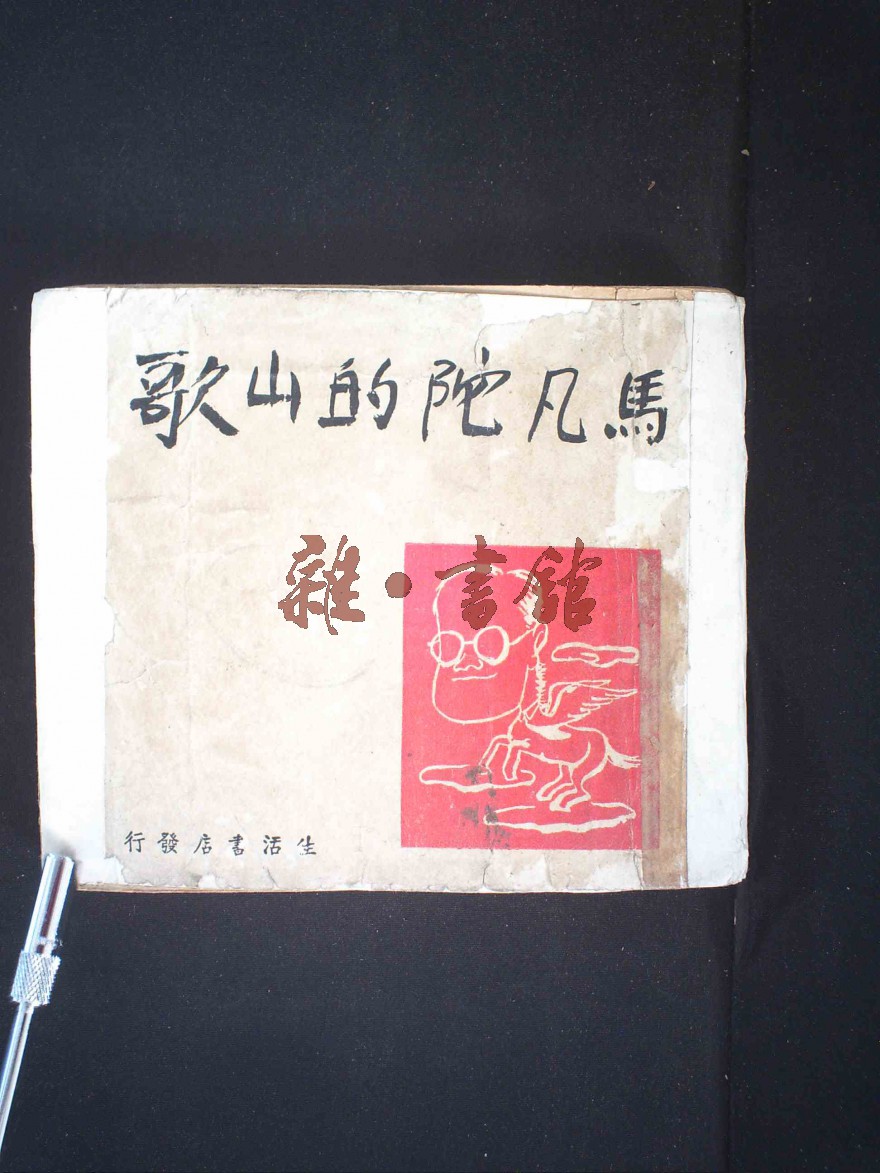 馬凡陀的山歌
雜·書館
生活書店發行